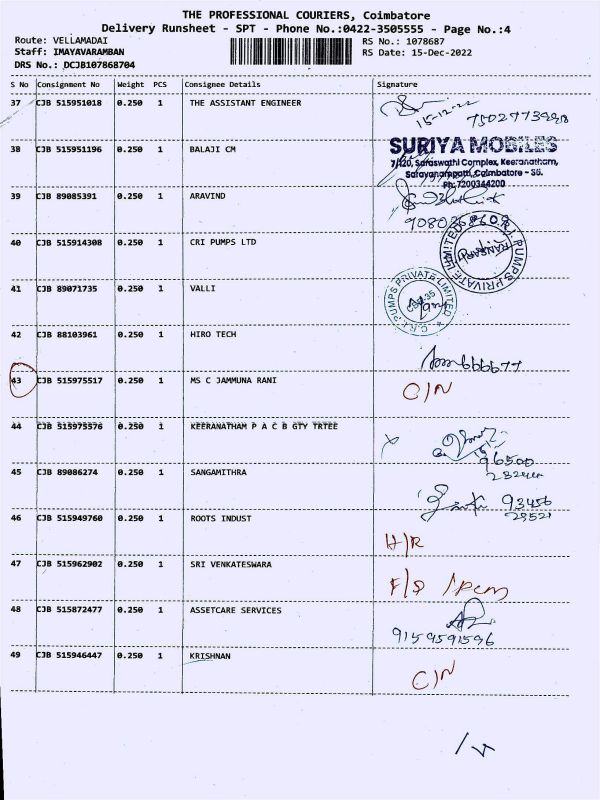 THE PROFESSIONAL COURIERS, Coimbatore
Delivery Runsheet - SPT - Phone No.:0422-3505555 - Page No.:4
Route: VELLAMADAI RS No.: 1078687
Staff: IMAYAVARAMBAN RS Date: 15-Dec-2022
DRS No.: DCJB107868704
S No Consignment No Weight PCS Consignee Details Signature
37 CJB 515951018 0.250 1 THE ASSISTANT ENGINEER
15-12-22
38 CJB 515951196 0.250 1 BALAJI CM
SURIYA MOBILES
7/120, Saraswathi Complex, Keeranatham,
Saravanampatti, Coimbatore - 35.
Ph: 7200344200
39 CJB 89085391 0.250 1 ARAVIND
40 CJB 515914308 0.250 1 CRI PUMPS LTD
C.R.I. PUMPS PRIVATE LIMITED
41 CJB 89071735 0.250 1 VALLI
C.R.I. PUMPS PRIVATE LIMITED
CBE-35
42 CJB 88103961 0.250 1 HIRO TECH
43 CJB 515975517 0.250 1 MS C JAMMUNA RANI C/N
44 CJB 515975576 0.250 1 KEERANATHAM P A C B GTY TRTEE
96500
45 CJB 89086274 0.250 1 SANGAMITHRA
93456
46 CJB 515949760 0.250 1 ROOTS INDUST
H/R
47 CJB 515962902 0.250 1 SRI VENKATESWARA
48 CJB 515872477 0.250 1 ASSETCARE SERVICES
9159591596
49 CJB 515946447 0.250 1 KRISHNAN
C/N